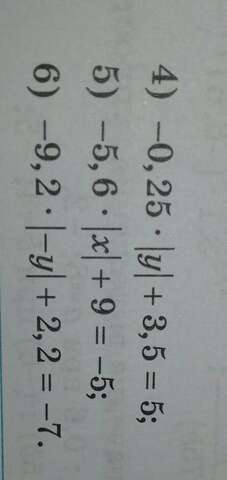 4) −0,25 · |y| + 3,5 = 5;
5) −5,6 · |x| + 9 = −5;
6) −9,2 · |−y| + 2,2 = −7.